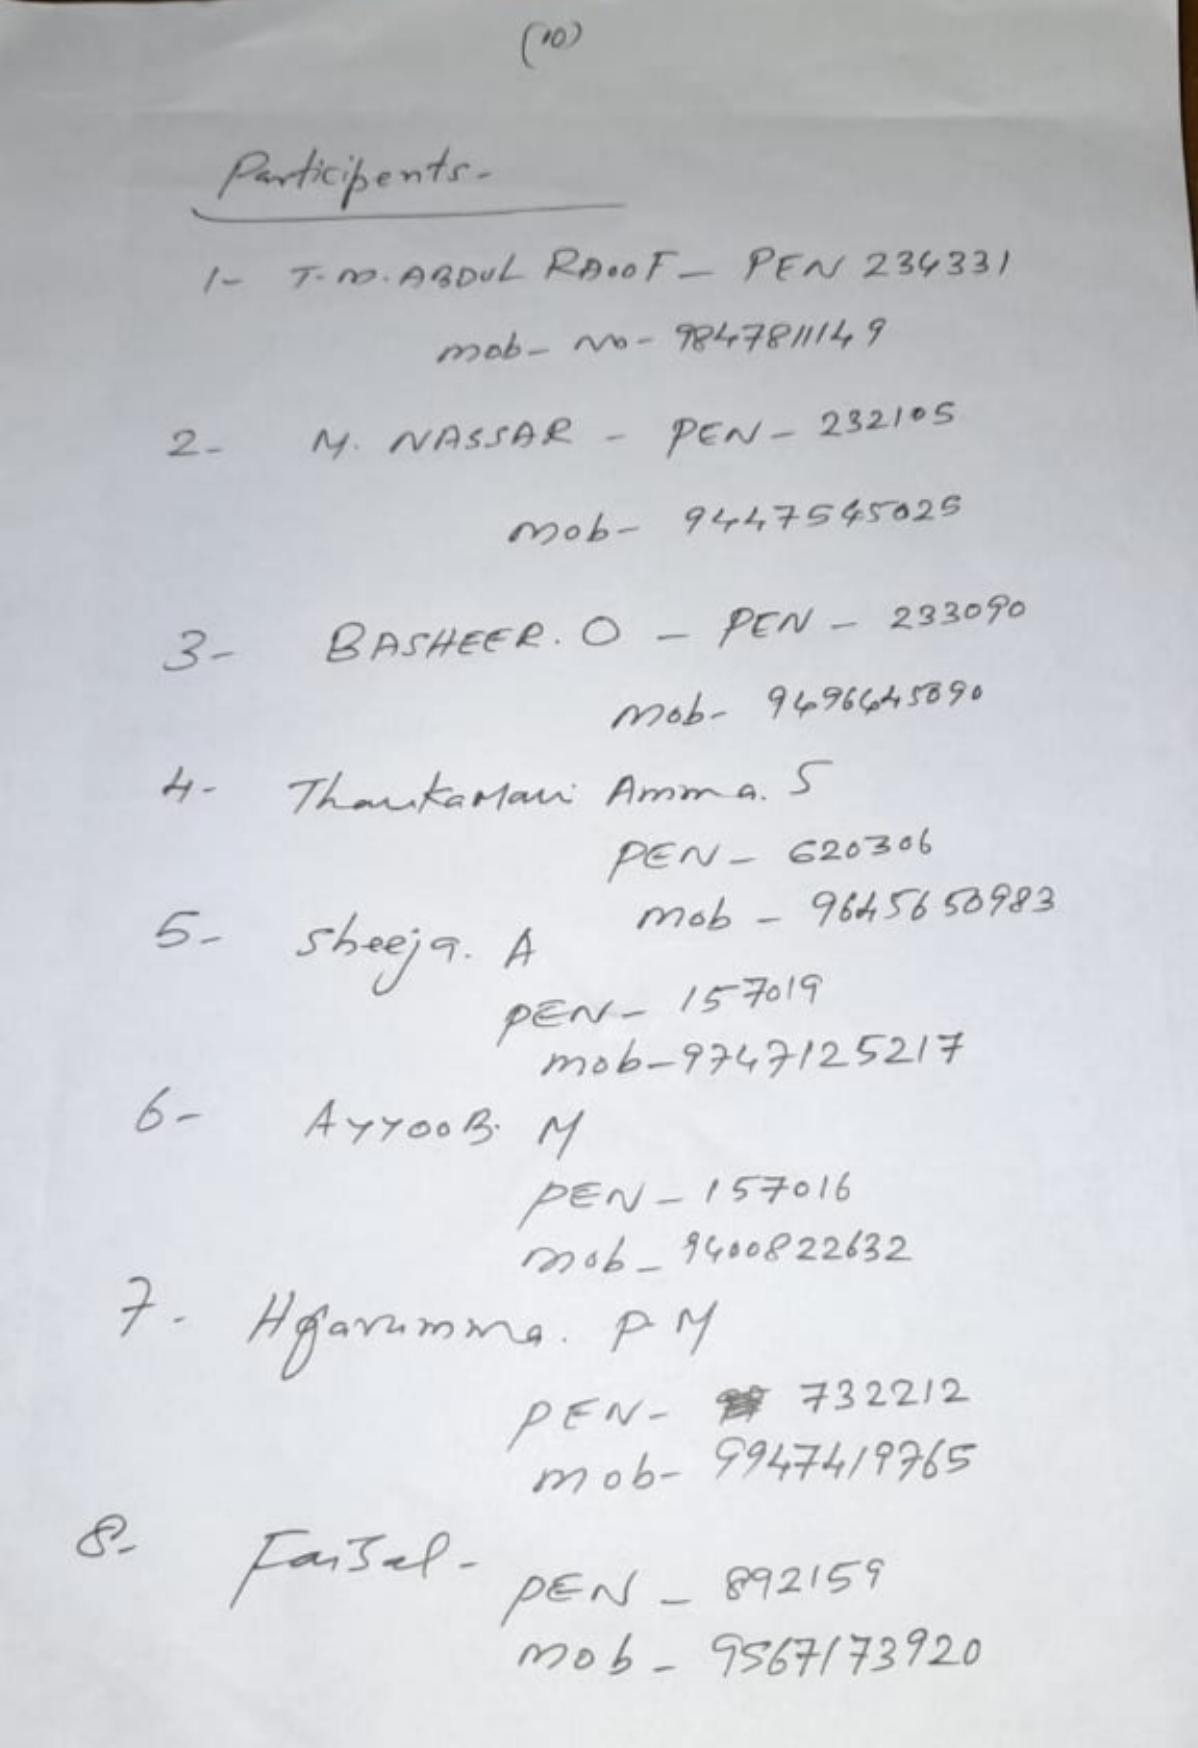 (10)
Participents-
1- T.M. ABDUL RAOOF - PEN 234331
mob- No- 9847811149
2- M. NASSAR - PEN - 232105
mob- 9447545025
3- BASHEER. O - PEN - 233090
mob- 9496445890
4- Thankamani Amma. S
PEN - 620306
mob - 9645650983
5- Sheeja. A
PEN - 157019
mob-9747125217
6- AYYOOB. M
PEN - 157016
mob - 9400822632
7- Hajarumma. P M
PEN - 732212
mob- 9947419765
8- Faisal -
PEN - 892159
mob - 9567173920